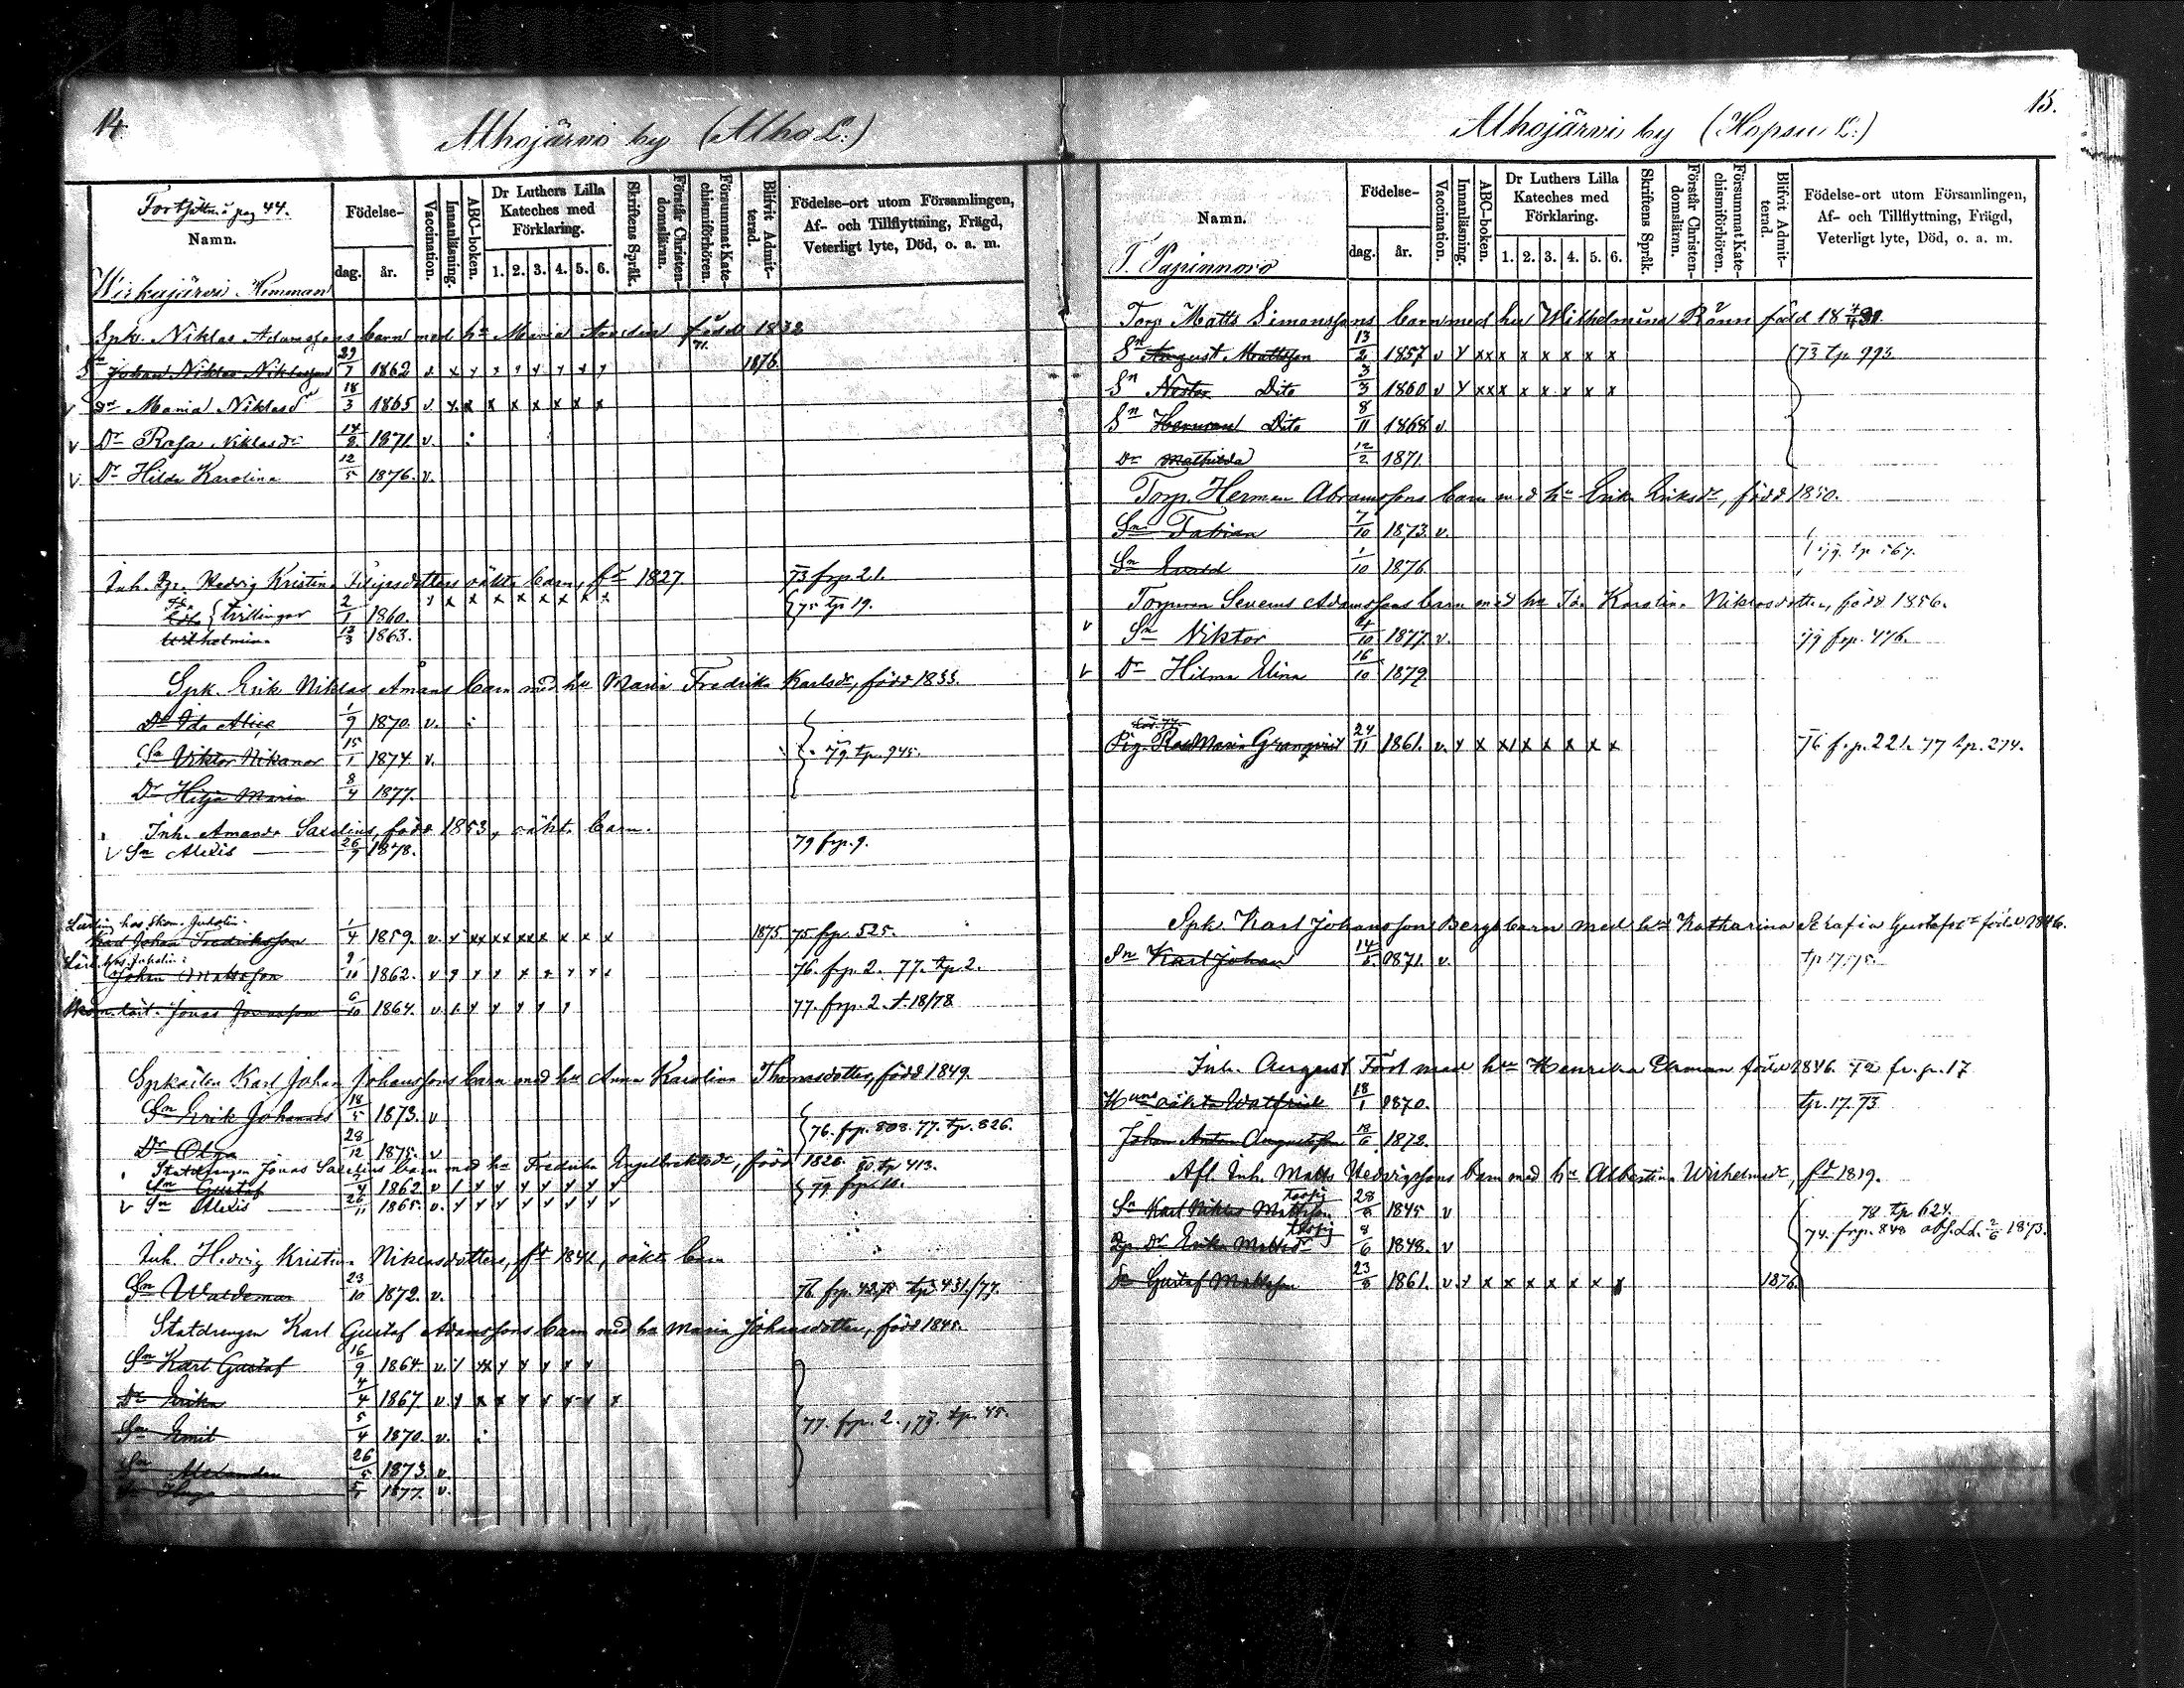 14
Alhojärvi by (Alho L:)
Fortsättn. å pag 44.
Namn.
Födelse-
dag.
år.
Vaccination.
Innanläsning.
ABC-boken.
Dr Luthers Lilla
Kateches med
Förklaring.
1. 2. 3. 4. 5. 6.
Skriftens Språk.
Förstår Christen-
domsläran.
Försummat Kate-
chismiförhören.
Blifvit Admit-
terad.
Födelse-ort utom Församlingen,
Af- och Tillflyttning, Frägd,
Veterligt lyte, Död, o. a. m.
Wirkajärvi Hemman
Spk. Niklas Adamssons barn med hu Maria född 1832
Sn Johan Niklas Niklasson 29/7 1862 v x x x x x x x x 1876.
v Dr Maria Niklasdr 18/3 1865 v. x. x x x x x x x
v Dr Rosa Niklasdr 14/2 1871. v.
v Dr Hilda Karolina 12/5 1876. v.
Inh. Hedvig Kristina Filipsdotters oäkta barn, fd 1827 73 frp. 21.
Ida } trillingar 2/1 1860. x x x x x x x x x { 75 tp 19.
Wilhelmina 12/3 1863.
Spk. Erik Niklas Åmans barn med hu Maria Fredrika Karlsdr, född 1833.
Dr Ida Alice 1/9 1870. v.
Sn Viktor Nikanor 15/1 1874 v. 79. tp. 945.
Dr Hilja Maria 8/4 1877.
Inh. Amanda Saxelius, född 1853, oäkta barn.
v Sn Alexis 26/7 1878. 79 frp. 9.
Lärling hos Skom. Juholin.
Karl Johan Fredriksson 1/4 1859. v. x xx xx xx x x x x 1875 75 frp. 525.
Lärl. hos Juholin:
Johan Mattsson 9/10 1862. v x x x x x x x 76. frp. 2. 77. tp. 2.
Skom. lärl. Jonas Jonasson 6/10 1864. v. x x x x x x 77. frp. 2. t. 18/78
Spkarlen Karl Johan Johanssons barn med hu Anna Karolina Thomasdotter, född 1849.
Sn Erik Johannes 18/5 1873. v
Dr Olga 28/12 1875. v { 76. frp. 808. 77. tp. 826.
Statdrengen Jonas Saxelius barn med hu Fredrika Engelbrektsdr, född 1826. 80 tp 413.
Sn Gustaf 1862 v x x x x x x x x { 79. frp. 10.
v Sn Alexis 26/11 1865. v. x x x x x x x x
Inh. Hedvig Kristina Niklasdotters, fd 1841, oäkta barn
Sn Waldemar 23/10 1872. v. 76. frp. 42. tp 451./77.
Statdrengen Karl Gustaf Adamssons barn med hu Maria Johansdotter, född 1845.
Sn Karl Gustaf 16/9 1864. v. x xx x x x x x
Dr Erika 4/4 1867 v. x x x x x x x x
Sn Emil 5/4 1870. v. 77. frp. 2., 79. tp. 45.
Sn Alexander 26/5 1873. v.
Sn Hugo 1877. v.
15.
Alhojärvi by (Hopsu L:)
Namn.
Födelse-
dag.
år.
Vaccination.
Innanläsning.
ABC-boken.
Dr Luthers Lilla
Kateches med
Förklaring.
1. 2. 3. 4. 5. 6.
Skriftens Språk.
Förstår Christen-
domsläran.
Försummat Kate-
chismiförhören.
Blifvit Admit-
terad.
Födelse-ort utom Församlingen,
Af- och Tillflyttning, Frägd,
Veterligt lyte, Död, o. a. m.
T. Papinnoro
Torp. Matts Simonssons barn med hu Wilhelmina Rönn född 18
Sn August Mattsson 13/2 1857 v x xx x x x x x x { 73 tp. 993.
Sn Nestor Dito 3/3 1860 v x xx x x x x x x
Sn Herman Dito 8/11 1868 v.
Dr Mathilda 12/2 1871.
Torp. Herman Abramssons barn med hu Erika Eriksdr, född 1850.
Sn Fabian 7/10 1873. v.
Sn Evald 1/10 1876. 79. tp 567.
Torparen Severus Adamssons barn med hu Ida Karolina Niklasdotter, född 1856.
v Sn Viktor 4/10 1877. v. 79 frp. 446.
v Dr Hilma Elina 16/10 1879.
Pig. Rosa Maria Granqvist 24/11 1861. v. x x xx x x x x x 76 frp. 221. 77 tp. 274.
Spk Karl Johansson Bergs barn med hu Katharina Serafia Gustafsdr född 1846.
Sn Karl Johan 14/5 1871. v. tp 17. 75.
Inh. August Förl med hu Henrika Ekman född 1846. 72 fr. p. 17
Huns oäkta Watfrid 18/1 1870. tp. 17. 73
Johan Anton Augustsson 18/6 1872.
Afl. Inh. Matts Hedvigssons barn med hu Albertina Wilhelmsdr, fd 1819.
Sn Karl Niklas Mattsson 28/8 1845 v 78 tp 624.
Dr Erika Mattsdr 8/6 1848. v 74. frp. 848 abs. d. 2/6 1873.
Sn Gustaf Mattsson 23/8 1861. v. x x x x x x x x 1876.